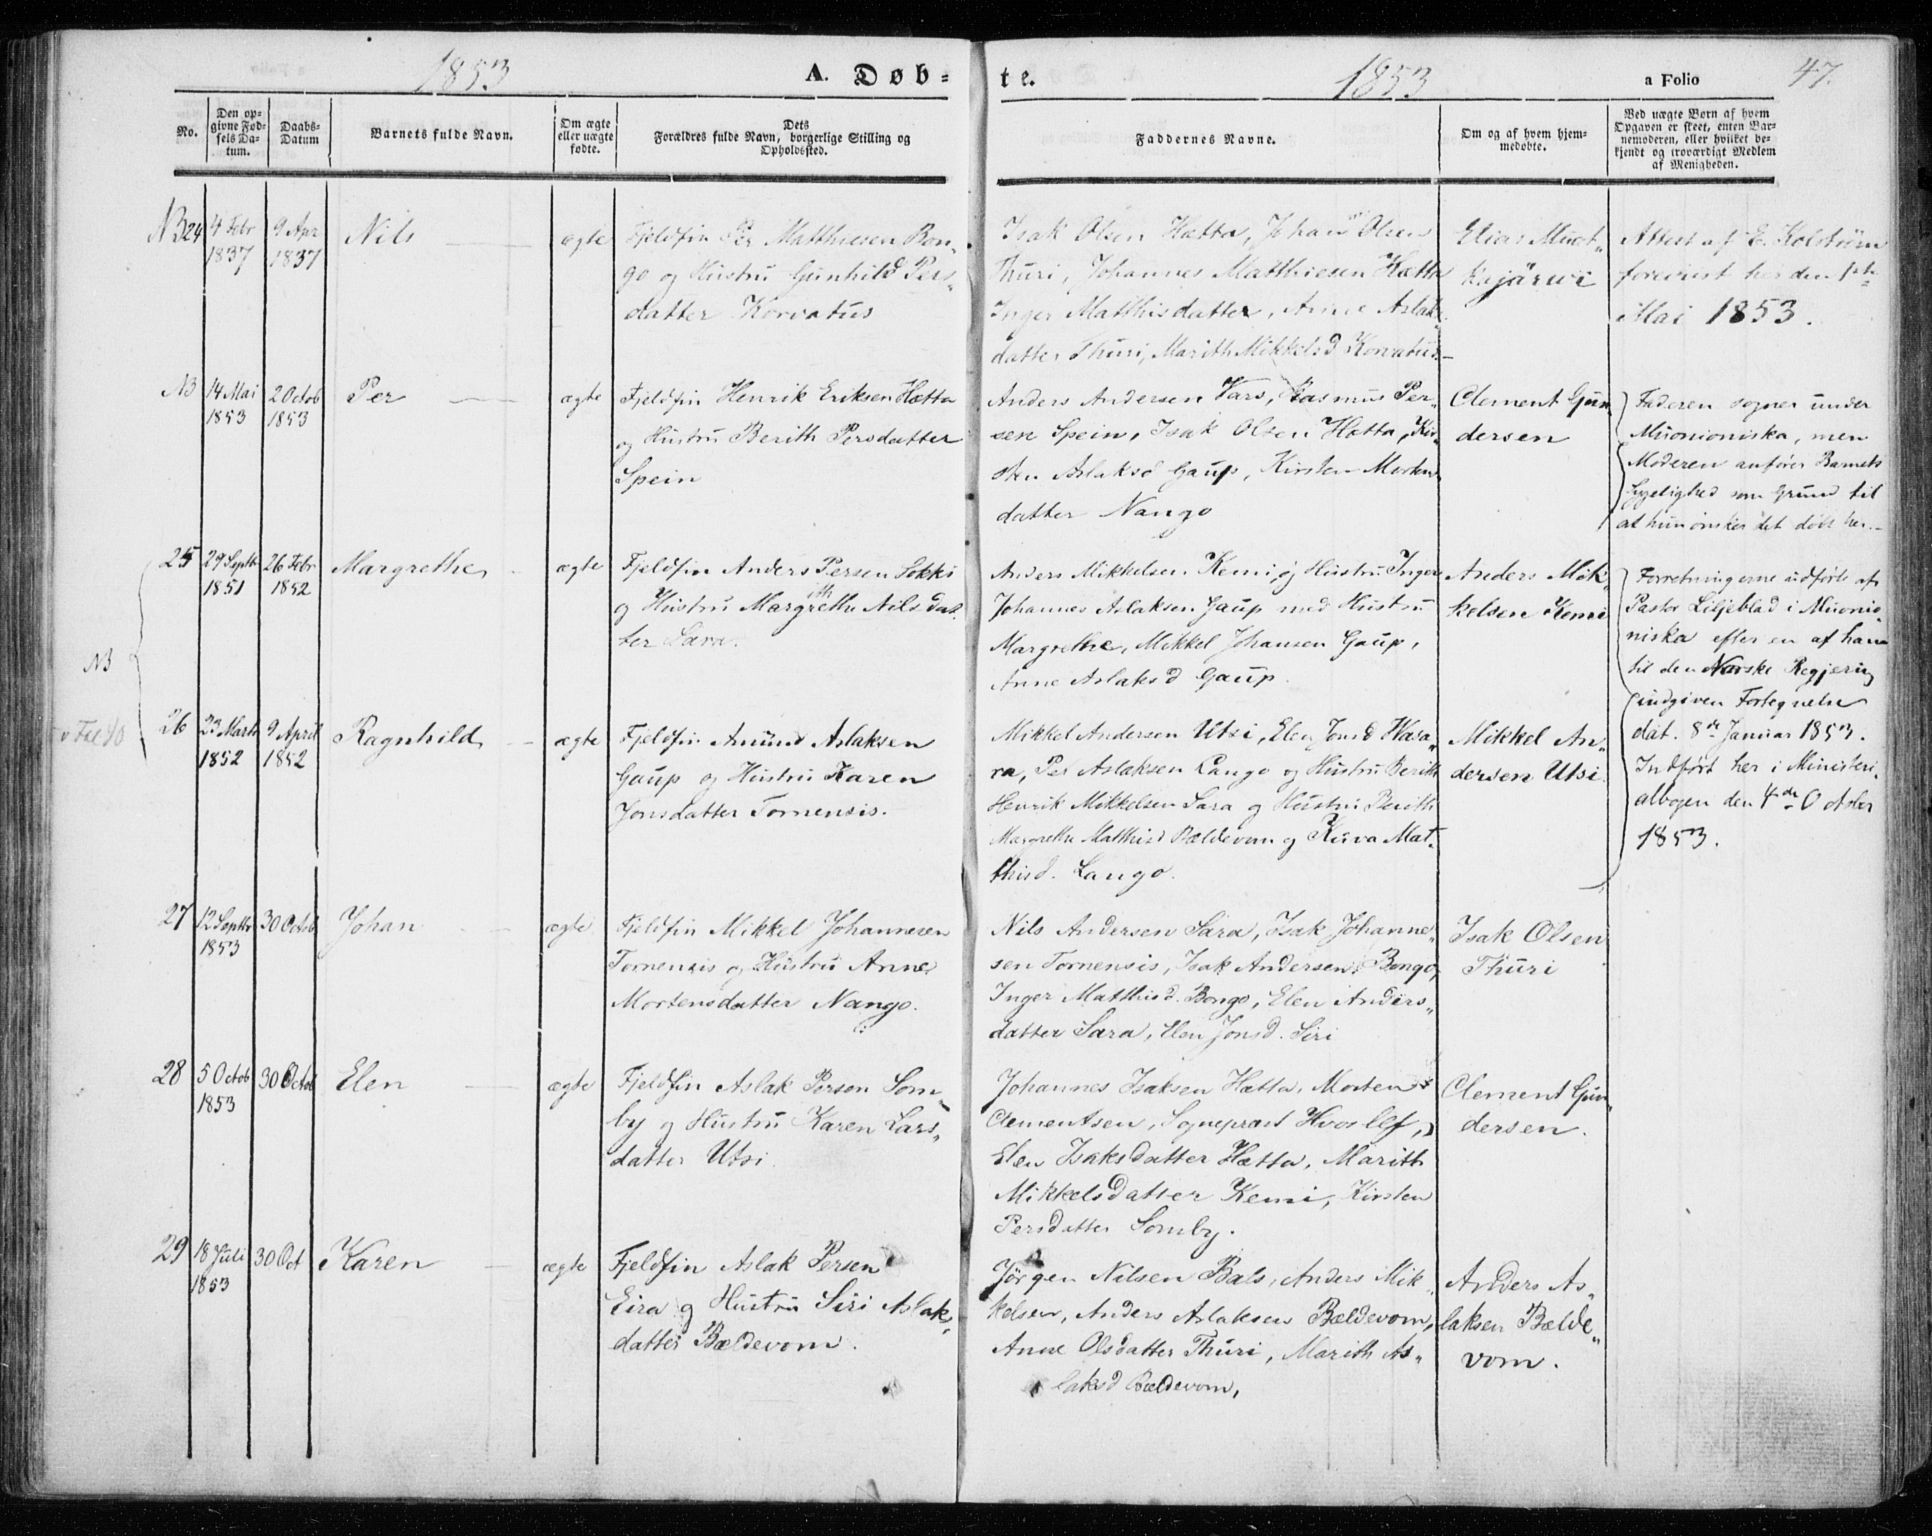 1853 A. Døb= te. 1853 a Folio 47.
No.
Den op-
givne Fød-
sels Da-
tum.
Daabs-
Datum
Barnets fulde Navn.
Om ægte
eller uægte
fødte.
Dets
Forældres fulde Navn, borgerlige Stilling og
Opholdssted.
Faddernes Navne.
Om og af hvem hjem-
medøbte.
Ved uægte Børn af hvem
Opgaven er skeet, enten Bar-
nemoderen, eller hvilket be-
kjendt og troværdigt Medlem
af Menigheden.
NB 24
4 Febr
1837
9 Apr
1837
Nils
ægte
Fjeldfin Per Matthiesen Bon„
go og Hustru Gunhild Pers„
datter Korvatus
Isak Olsen Hætta, Johan Olsen
Thuri, Johannes Matthiesen Hætta
Inger Matthisdatter, Anne Aslak„
datter Thuri, Marith Mikkelsd Korvatus
Elias Muot„
kajärwi
Attest af E. Kolström
foreviist her den 1ste
Mai 1853.
NB
14 Mai
1853
2 Octob
1853
Per
ægte
Fjeldfin Henrik Eriksen Hætta
og Hustru Berith Persdatter
Spein
Anders Andersen Vars, Rasmus Per„
sen Spein, Isak Olsen Hætta, Kir„
sten Aslaksd Gaup, Kirsten Mortens
datter Nango
Clement Gun
dersen
Faderen sogner under
Muonioniska, men
Moderen anfører Barnets
Sygelighed som Grund til
at hun ønsker det døbt her.
25
29 Septb
1851
26 Febr
1852
Margrethe
ægte
Fjeldfin Anders Persen Sokki
og Hustru Margrethe Nilsdat„
ter Sara.
Anders Mikkelsen Kemi og Hustru Inger
Johannes Aslaksen Gaup med Hustru
Margrethe, Mikkel Johansen Gaup,
Anne Aslaksd Gaup.
Anders Mik
kelsen Kemi
Forretningerne udførte af
Pastor Liljeblad i Muonio
niska efter en af ham
til den Norske Regjering
indgiven Fortegnelse
dat. 8de Januar 1853.
Indført her i Ministeri„
albogen den 4de October
1853.
NB
26
23 Marts
1852
9 April
1852
Ragnhild
ægte
Fjeldfin Amund Aslaksen
Gaup og Hustru Karen
Jonsdatter Tornensis.
Mikkel Andersen Utsi, Elen Jonsd Wasa„
ra, Per Aslaksen Lango og Hustru Berith
Henrik Mikkelsen Sara og Hustru Berith
Margrethe Matthisd Bældevom og Kuva Mat„
thisd. Lango.
Mikkel An„
dersen Utsi
27
12 Septbr
1853
30 Octob
Johan
ægte
Fjeldfin Mikkel Johannesen
Tornensis og Hustru Anne
Mortensdatter Nango.
Nils Andersen Sara, Isak Johanne„
sen Tornensis, Isak Andersen Bongo,
Inger Matthisd. Bongo, Elen Anders„
datter Sara, Elen Jonsd. Siri
Isak Olsen
Thuri
28
5 Octob
1853
30 Octob
Elen
ægte
Fjeldfin Aslak Persen Som„
by og Hustru Karen Lars„
datter Utsi
Johannes Isaksen Hætta, Morten
Clementsen, Sogneprest Hvoslef,
Elen Isaksdatter Hætta, Marith
Mikkelsdatter Kemi, Kirsten
Persdatter Somby.
Clement Gun„
dersen.
29
18 Juli
1853
30 Oct
Karen
ægte
Fjeldfin Aslak Persen
Eira og Hustru Siri Aslak„
datter Bældevom.
Jörgen Nilsen Bals, Anders Mik„
kelsen, Anders Aslaksen Bældevom,
Anne Olsdatter Thuri, Marith As„
laksd Bældevom,
Anders As„
laksen Bælde„
vom.